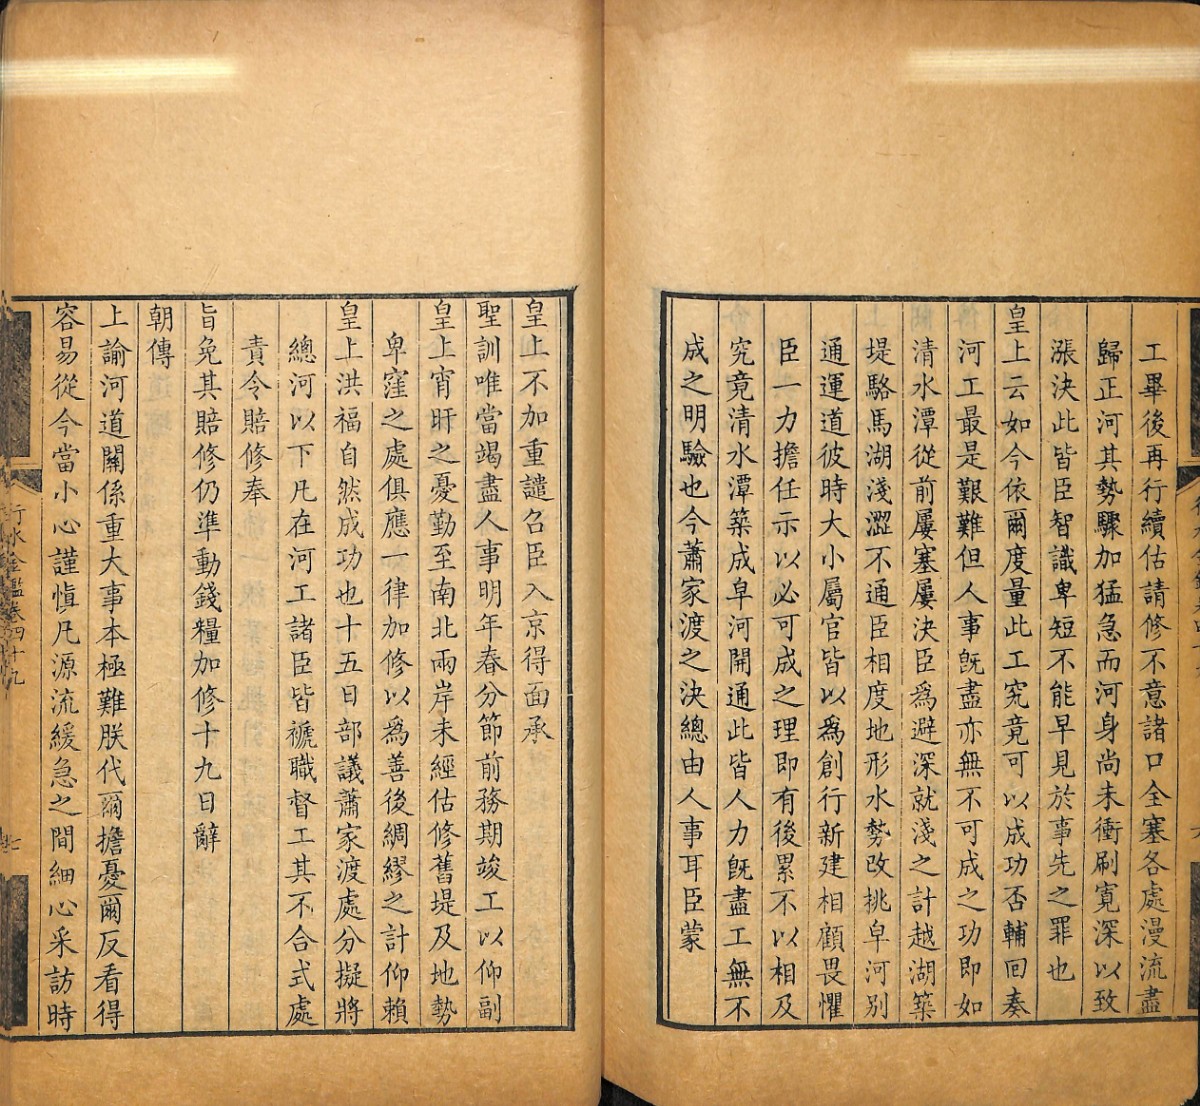 工畢後再行續估請修不意諸口全塞各處漫流盡
歸正河其勢驟加猛急而河身尚未衝刷寬深以致
漲決此皆臣智識卑短不能早見於事先之罪也
皇上云如今依爾度量此工究竟可以成功否輔回奏
河工最是艱難但人事旣盡亦無不可成之功即如
清水潭從前屢塞屢決臣爲避深就淺之計越湖築
堤駱馬湖淺澀不通臣相度地形水勢改挑皁河别
通運道彼時大小屬官皆以爲創行新建相顧畏懼
臣一力擔任示以必可成之理即有後累不以相及
究竟清水潭築成皁河開通此皆人力旣盡工無不
成之明驗也今蕭家渡之決總由人事耳臣蒙
皇上不加重譴召臣入京得面承
聖訓唯當竭盡人事明年春分節前務期竣工以仰副
皇上宵旰之憂勤至南北兩岸未經估修舊堤及地勢
卑窪之處俱應一律加修以爲善後綢繆之計仰賴
皇上洪福自然成功也十五日部議蕭家渡處分擬將
總河以下凡在河工諸臣皆褫職督工其不合式處
責令賠修奉
旨免其賠修仍準動錢糧加修十九日辭
朝傳
上諭河道關係重大事本極難朕代爾擔憂爾反看得
容易從今當小心謹慎凡源流緩急之間細心采訪時
行水金鑑卷四十九